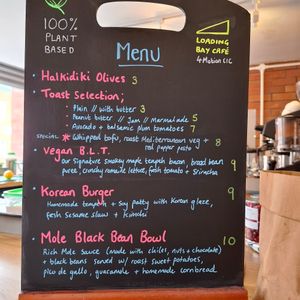 100%
PLANT
BASED
LOADING
BAY CAFÉ
4Motion CIC
Menu
• Halkidiki Olives 3
• Toast Selection;
- Plain // with butter 3
- Peanut butter // Jam // Marmalade 5
- Avocado + balsamic plum tomatoes 7
SPECIAL * Whipped tofu, roast Mediterranean veg + 8
red pepper pesto
• Vegan B.L.T.
our Signature smokey maple tempeh bacon, broad bean 9
puree, crunchy romaine lettuce, fresh tomato + Sriracha
• Korean Burger 9
Homemade tempeh + soy patty with Korean glaze,
fresh sesame slaw + kimchi
• Mole Black Bean Bowl 10
Rich Mole Sauce (made with chiles, nuts + chocolate)
+ black beans served w/ roast sweet potatoes,
pico de gallo, guacamole + homemade cornbread